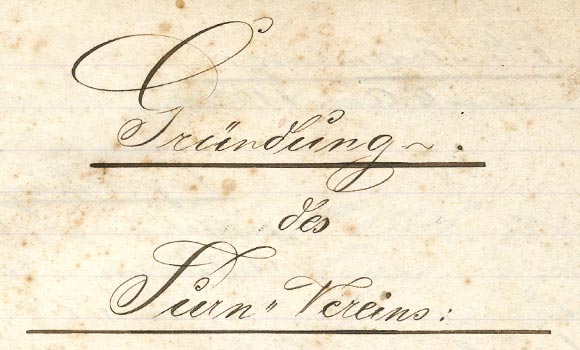 Gründung ~.
des
Turn„ Vereins: